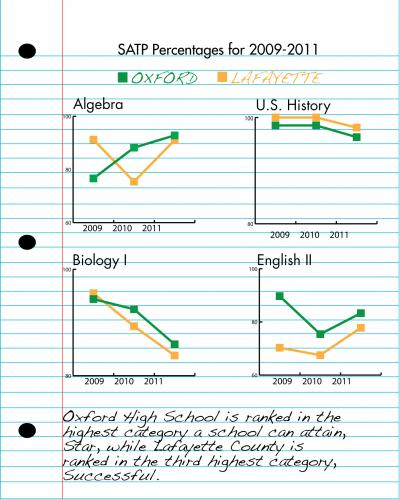 SATP Percentages for 2009-2011
OXFORD LAFAYETTE
Algebra
100
80
60
2009 2010 2011
U.S. History
100
80
2009 2010 2011
Biology I
100
80
2009 2010 2011
English II
100
80
60
2009 2010 2011
Oxford High School is ranked in the
highest category a school can attain,
Star, while Lafayette County is
ranked in the third highest category,
Successful.